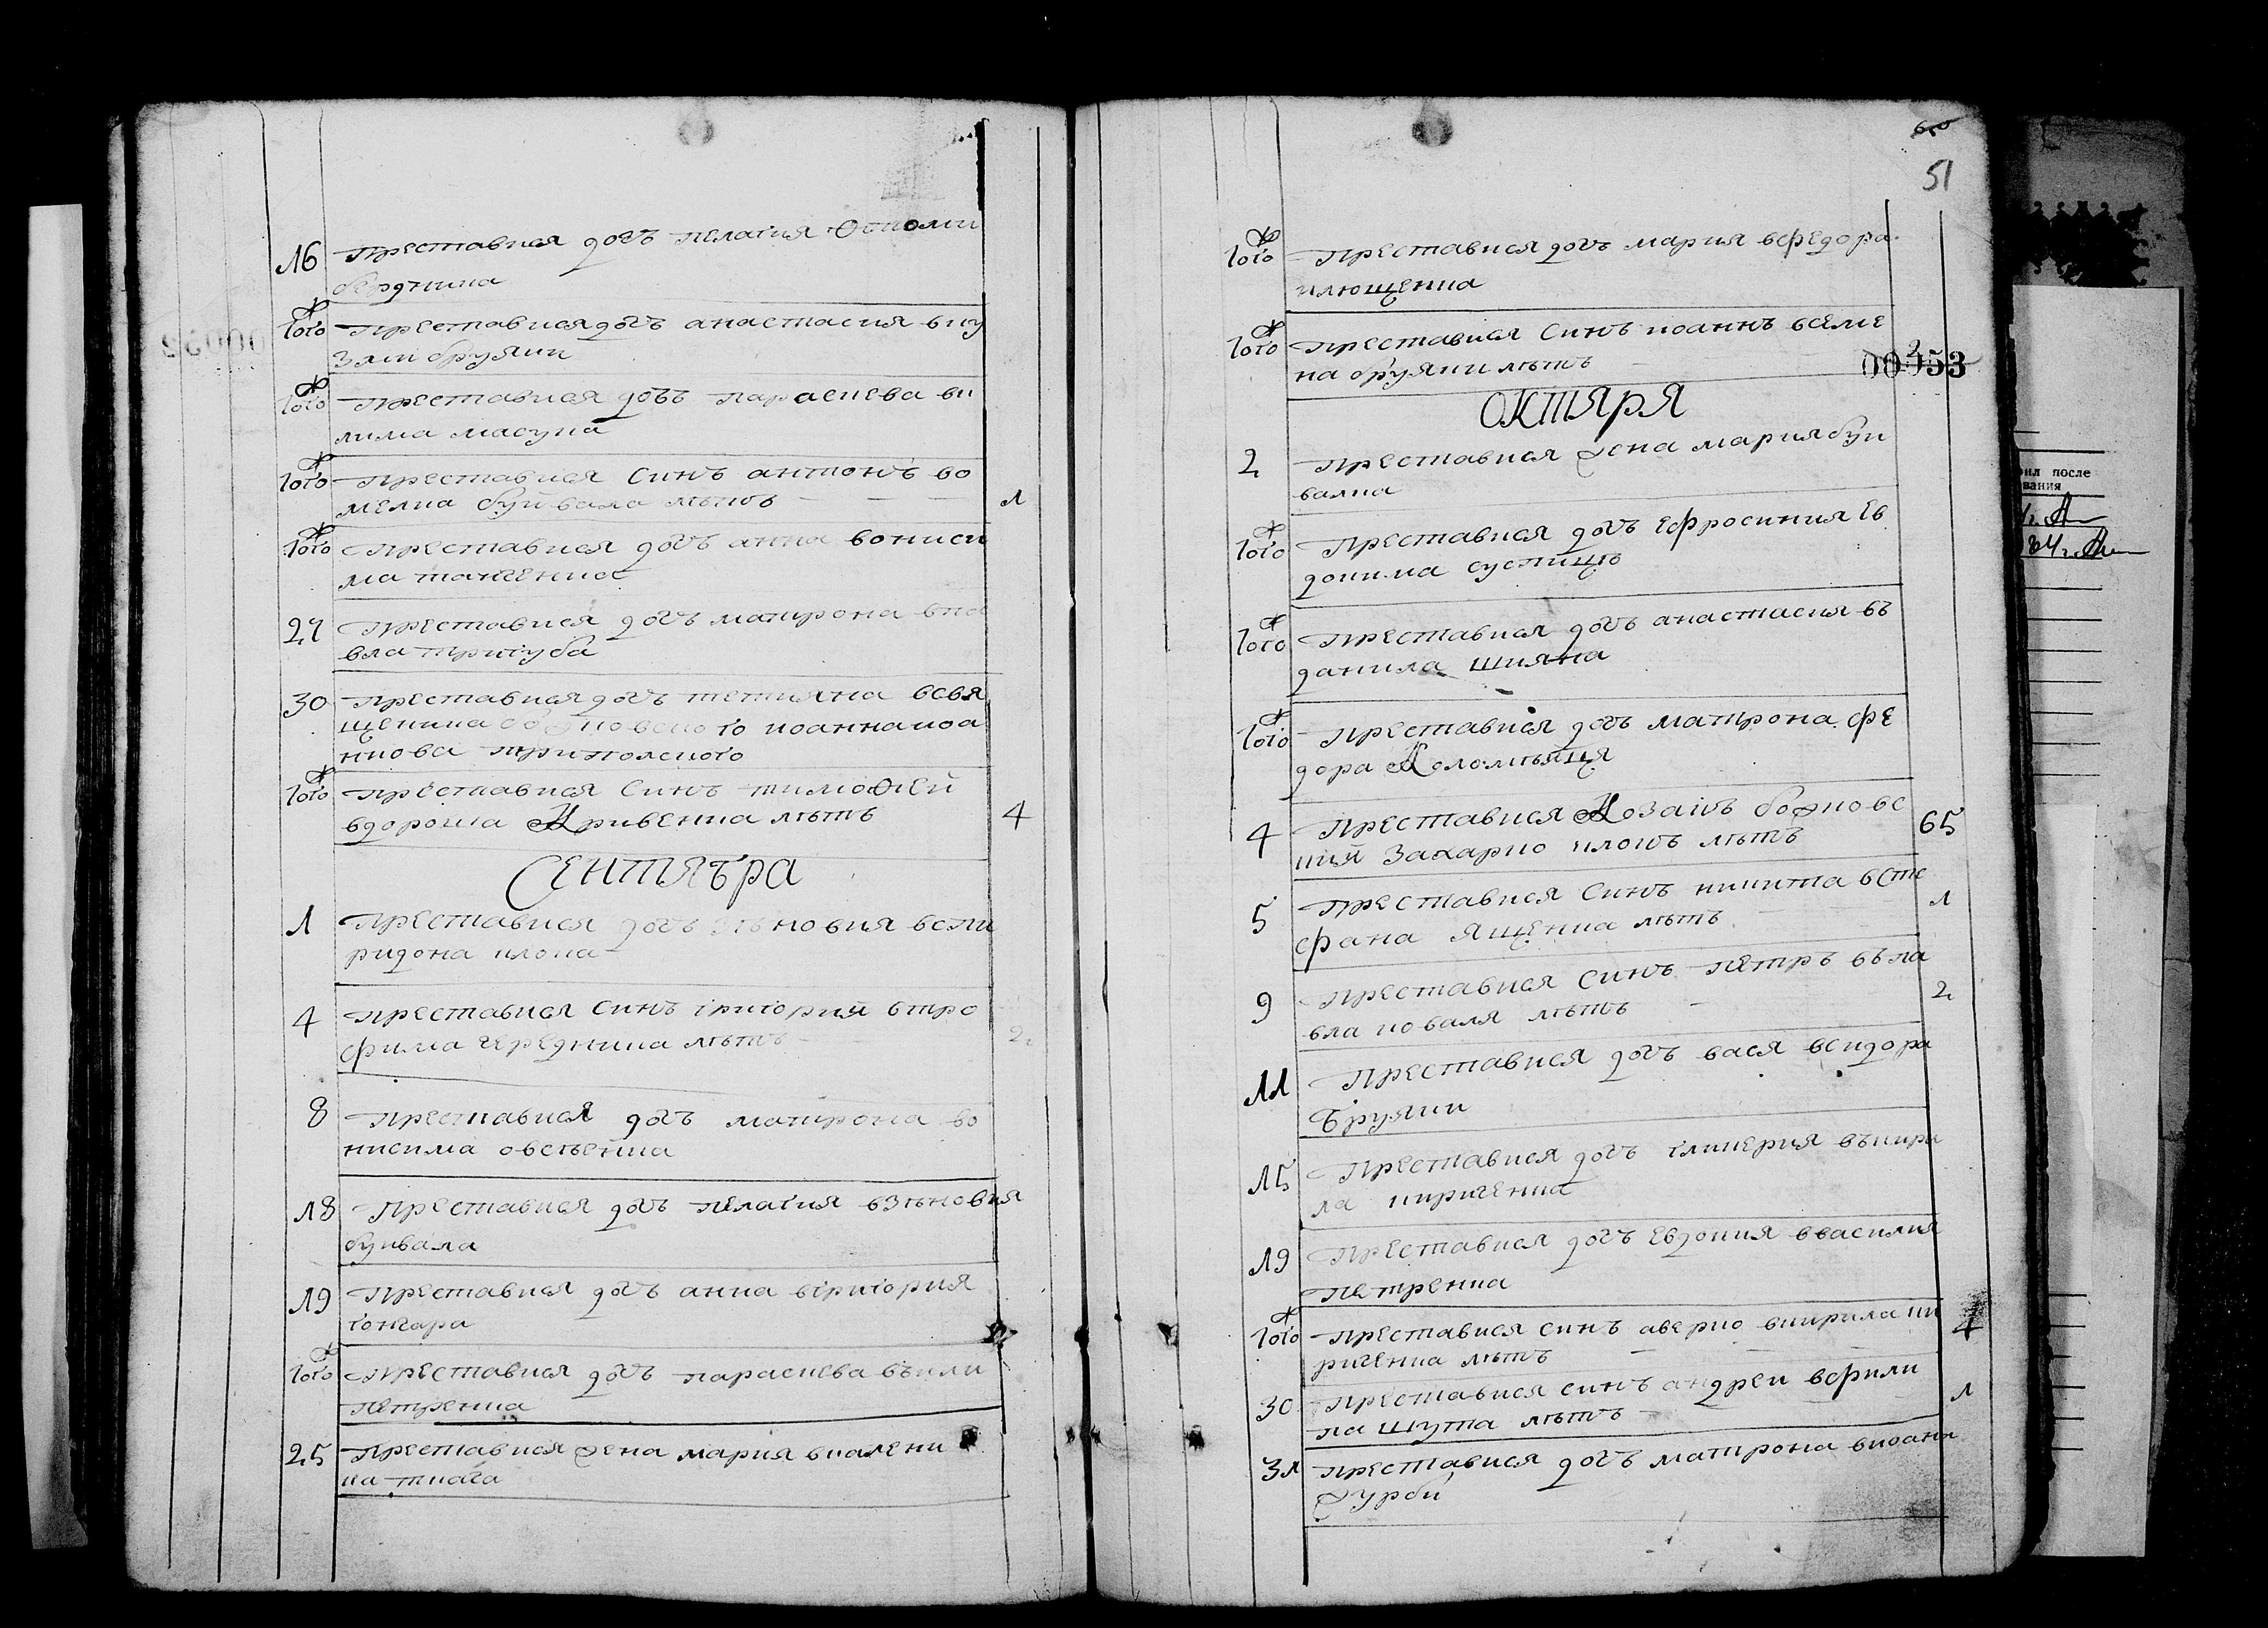 16 преставися дочъ пелагия Ѳтоми
бердника
того преставися дочъ анастасия вку
зми брумки
того преставися дочъ параскева вк
лима масуна
того преставися синъ антонъ во
мелка буйвала лѣтъ 1
того преставися дочъ анна вониси
ма танченка
27 преставися дочъ матрона впа
вла тригуба
30 преставися дочъ тетияна всвя
щеника иоанна иоа
ннова трипольского
того преставися синъ тимоѲей
вдорошa Кривенка лѣтъ 4
Сентяъра
1 преставися дочъ зѣновия вспи
ридона клока
4 преставися синъ григорий втро
фима чередника лѣтъ 2
8 преставися дочъ матрона во
нисима овсѣенка
18 преставися дочъ пелагия взѣновия
буйвала
19 преставися дочъ анна вгригория
гончара
того преставися дочъ параскева въили
петренка
25 преставися жена мария вкалени
ка ткача
51
того преставися дочъ мария вфедора
илющенка
того преставися синъ иоаннъ всеме
на брумки лѣтъ
00253
ОКТЯРЯ
2 преставися жена мария буи
валка
того преставися дочъ ефросиния ев
докима
того преставися дочъ анастасия въ
данила шияна
того преставися дочъ матрона фе
дора Коломѣяця
4 преставися Козакъ божковс
кий Захарко клокъ лѣтъ 65
5 преставися синъ никита всте
фана ященка лѣтъ 1
9 преставися синъ петръ въпа
вла коваля лѣтъ 2
11 преставися дочъ вася всидора
Брумки
15 преставися дочъ гликерия въкири
ла кириченка
19 преставися дочъ евдокия ввасилия
петренка
того преставися синъ аверко вкирила ки
риченка лѣтъ 4
30 преставися синъ андреи вфили
па шкута лѣтъ 1
31 преставися дочъ матрона виоана
журби